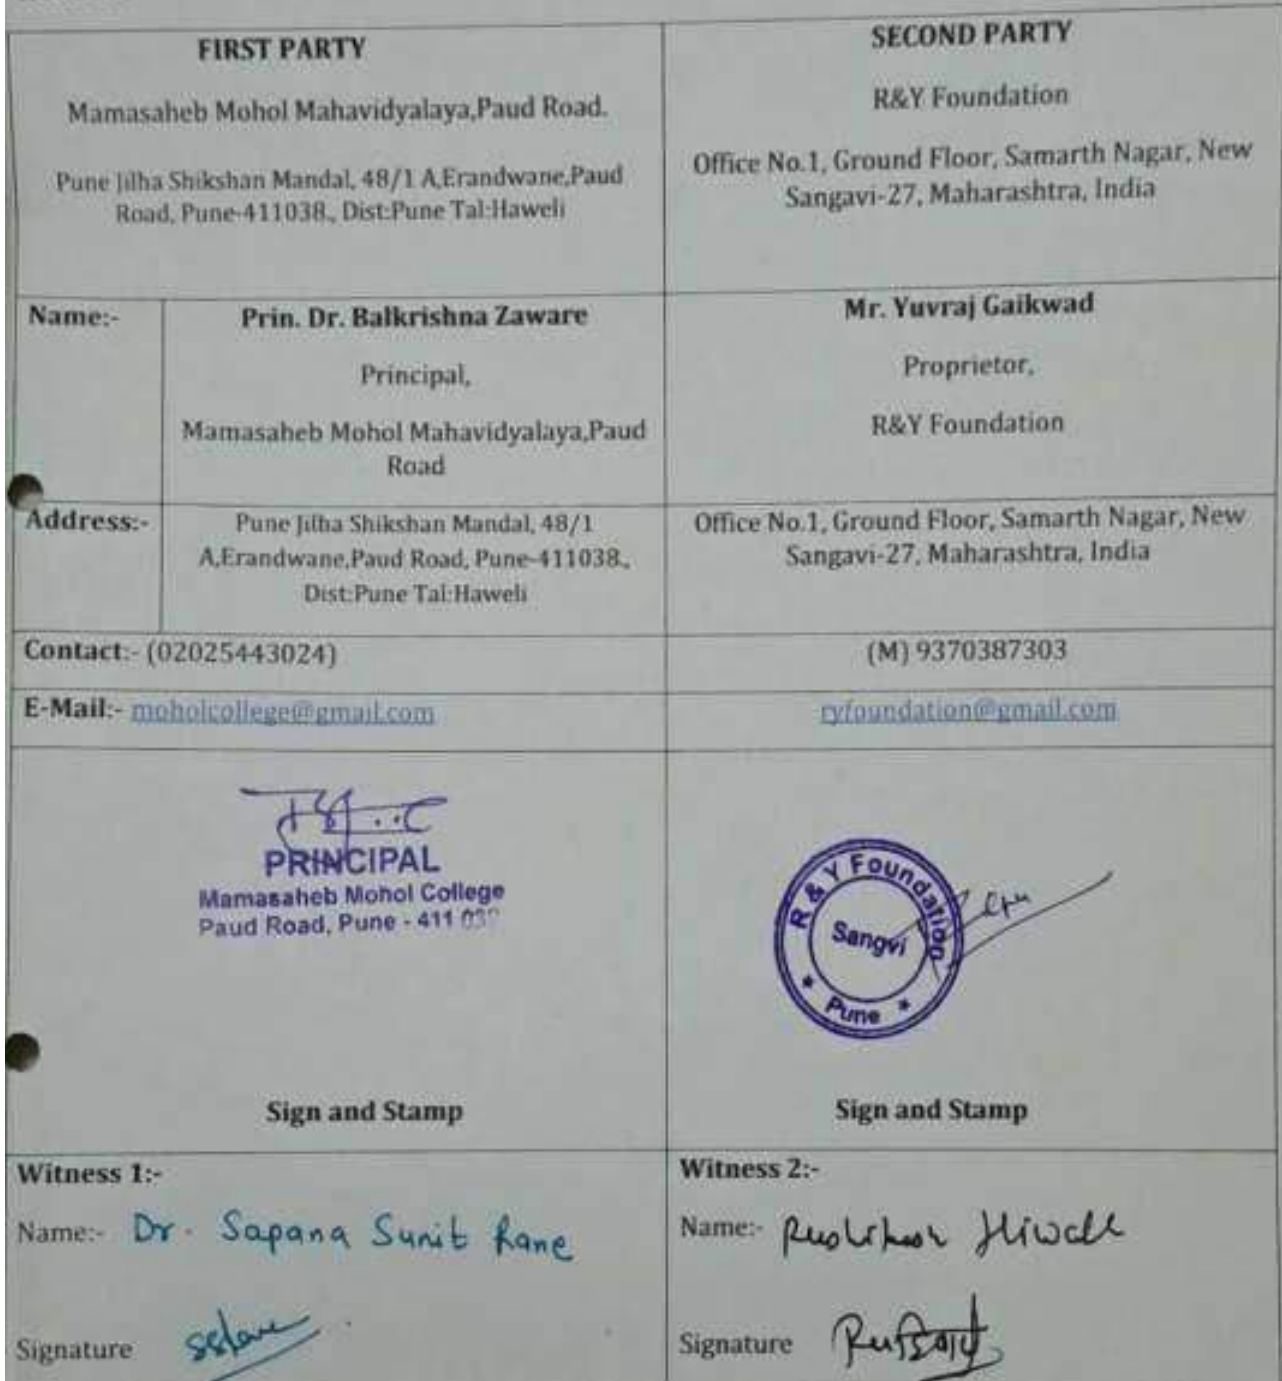 FIRST PARTY
Mamasaheb Mohol Mahavidyalaya,Paud Road.
Pune Jilha Shikshan Mandal, 48/1 A,Erandwane,Paud
Road, Pune-411038., Dist:Pune Tal:Haweli
SECOND PARTY
R&Y Foundation
Office No.1, Ground Floor, Samarth Nagar, New
Sangavi-27, Maharashtra, India
Name:-
Prin. Dr. Balkrishna Zaware
Principal,
Mamasaheb Mohol Mahavidyalaya,Paud
Road
Mr. Yuvraj Gaikwad
Proprietor,
R&Y Foundation
Address:-
Pune Jilha Shikshan Mandal, 48/1
A,Erandwane,Paud Road, Pune-411038.,
Dist:Pune Tal:Haweli
Office No.1, Ground Floor, Samarth Nagar, New
Sangavi-27, Maharashtra, India
Contact:- (02025443024)
(M) 9370387303
E-Mail:- moholcollege@gmail.com
ryfoundation@gmail.com
PRINCIPAL
Mamasaheb Mohol College
Paud Road, Pune - 411
Sign and Stamp
R & Y Foundation
Sangvi
* Pune *
Sign and Stamp
Witness 1:-
Name:- Dr. Sapana Sunit Rane
Signature
Witness 2:-
Name:-
Signature